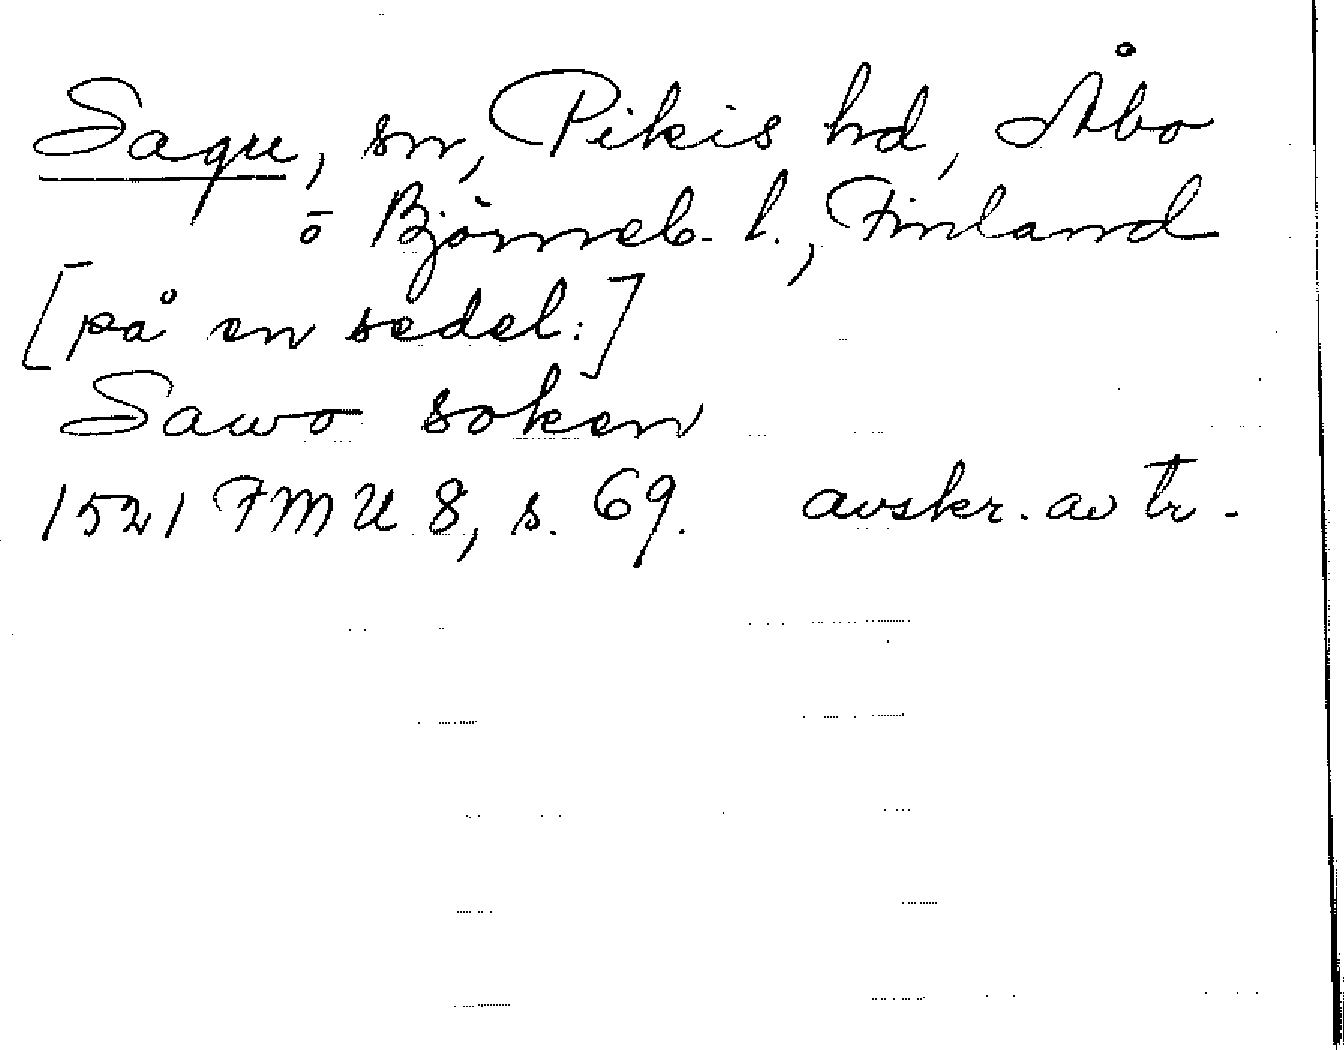 Sagu, sn, Pikis hd, Åbo
o Björneb. l., Finland
[på en sedel:]
Sawo soken
1521 FMU 8, s. 69. avskr. av tr.